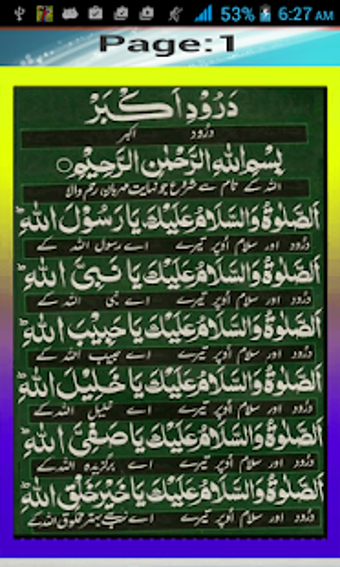 53% 6:27 AM
Page:1
دَرُوْدِ اَكْبَرْ
درود اکبر
بِسْمِ اللهِ الرَّحْمٰنِ الرَّحِيْمِ
اللہ کے نام سے شروع جو نہایت مہربان رحم والا
اَلصَّلٰوةُ وَالسَّلَامُ عَلَيْكَ يَا رَسُوْلَ اللهِ
درود اور سلام اُوپر تیرے اے رسول اللہ کے
اَلصَّلٰوةُ وَالسَّلَامُ عَلَيْكَ يَا نَبِيَّ اللهِ
درود اور سلام اُوپر تیرے اے نبی اللہ کے
اَلصَّلٰوةُ وَالسَّلَامُ عَلَيْكَ يَا حَبِيْبَ اللهِ
درود اور سلام اُوپر تیرے اے حبیب اللہ کے
اَلصَّلٰوةُ وَالسَّلَامُ عَلَيْكَ يَا خَلِيْلَ اللهِ
درود اور سلام اُوپر تیرے اے خلیل اللہ کے
اَلصَّلٰوةُ وَالسَّلَامُ عَلَيْكَ يَا صَفِيَّ اللهِ
درود اور سلام اُوپر تیرے اے برگزیدہ اللہ کے
اَلصَّلٰوةُ وَالسَّلَامُ عَلَيْكَ يَا خَيْرَ خَلْقِ اللهِ
درود اور سلام اُوپر تیرے اے بہتر مخلوق اللہ کے